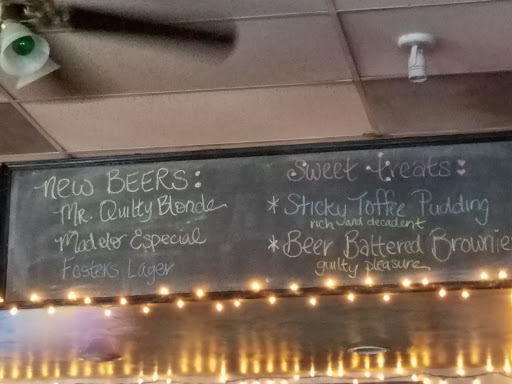 New BEERS:
Mr. Quilty Blonde
Modelo Especial
Fosters Lager
Sweet treats:
* Sticky Toffee Pudding
rich and decadent
* Beer Battered Brownie
guilty pleasure